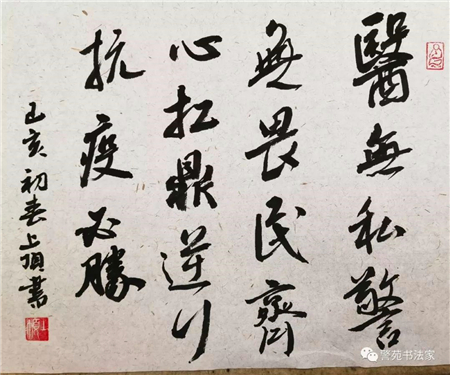 醫無私警
無畏民齊
心扛鼎逆行
抗疫必勝
己亥初春上頂書
警苑书法家